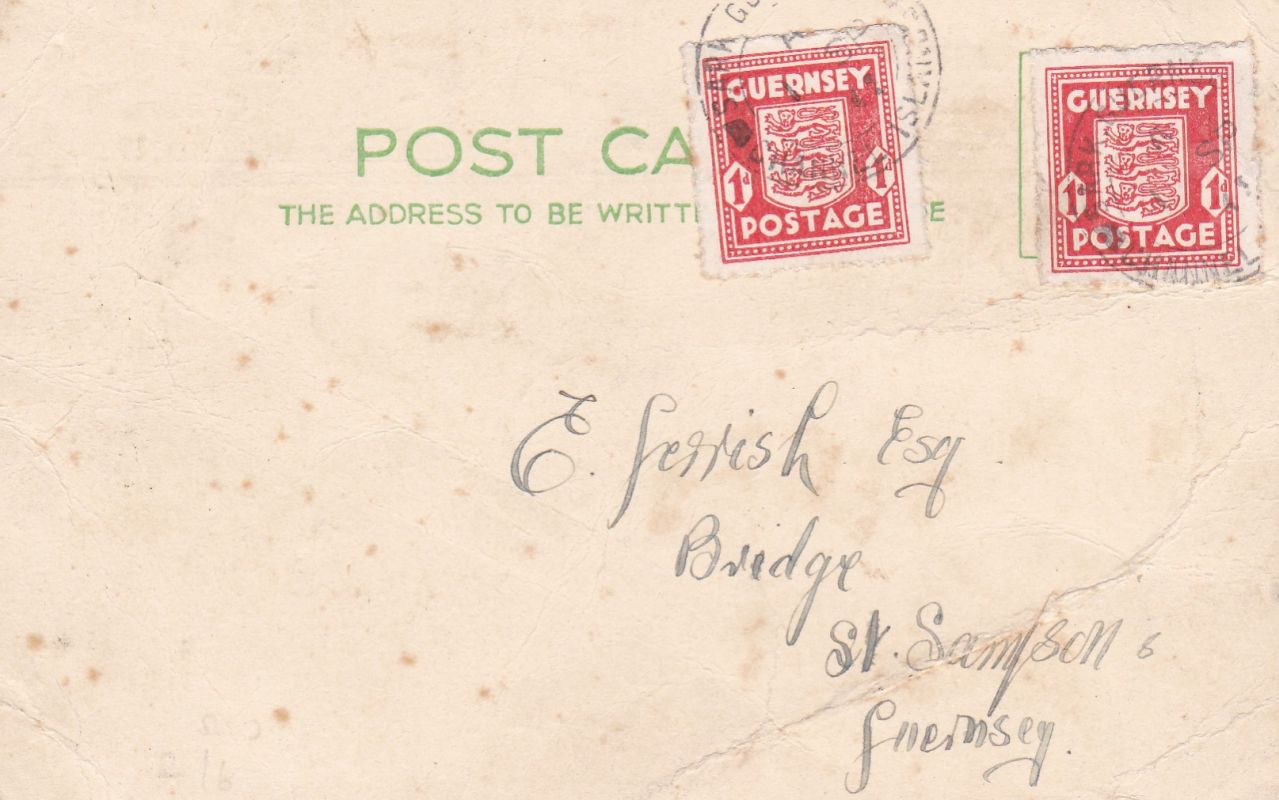 POST CA
THE ADDRESS TO BE WRITTE
E
GUERNSEY
1d 1d
POSTAGE
GUERNSEY
1d 1d
POSTAGE
SARK GU
ISLAN
E. Gerrish Esq
Bridge
St. Sampsons
Guernsey.